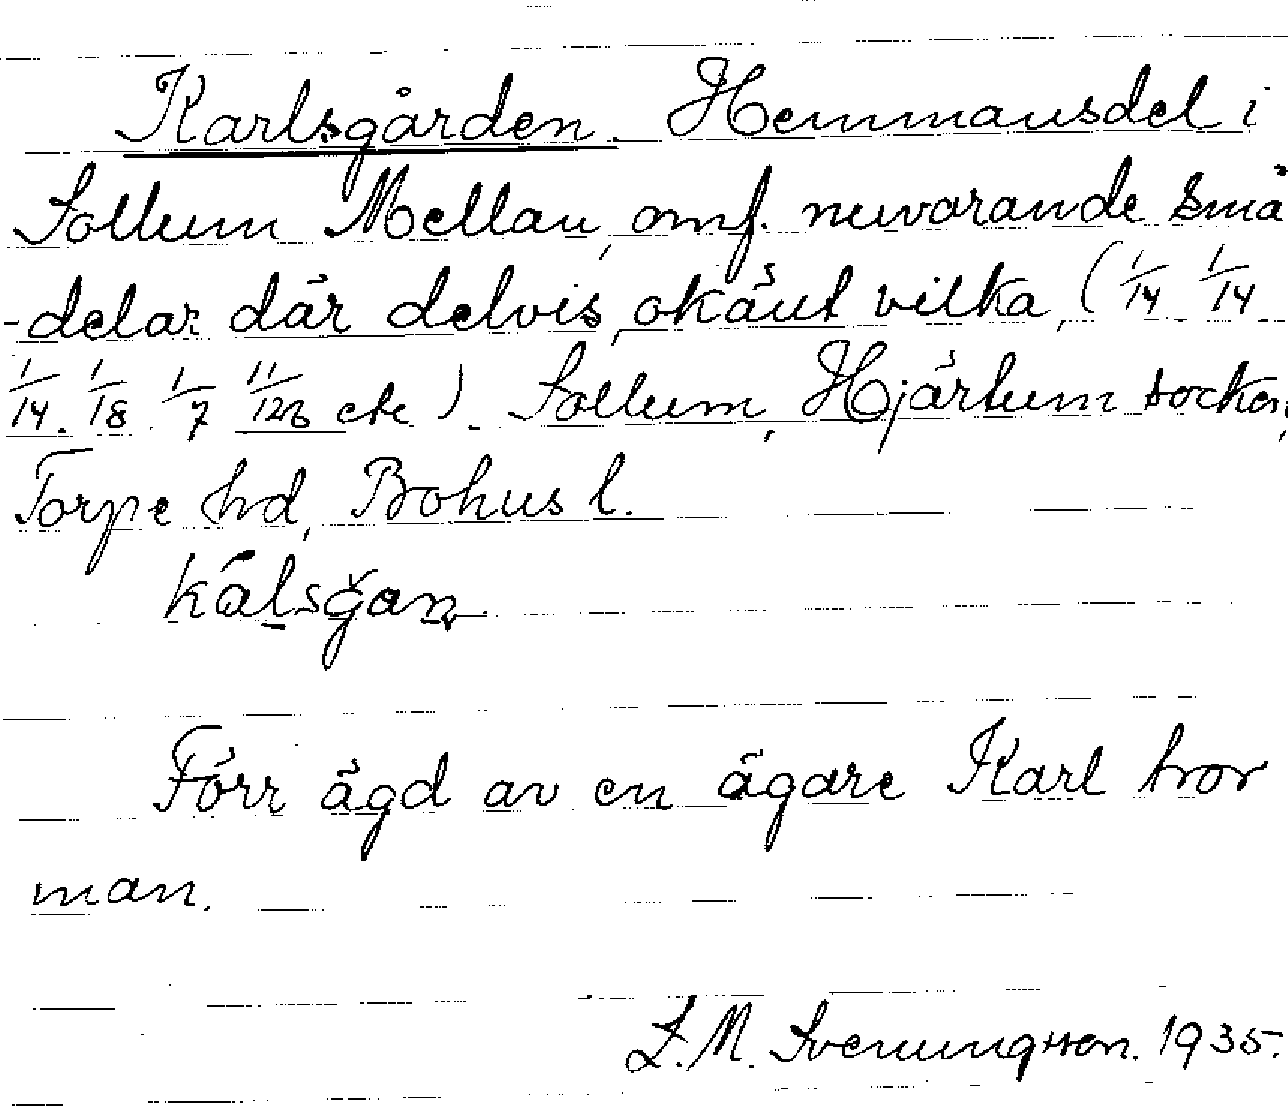 Karlsgården. Hemmansdel i
Sollum Mellan, omf. nuvarande små
-delar där delvis, okänt vilka, (1/14 1/14
1/14. 1/18 1/7 11/126 etc). Sollum, Hjärtum socken,
Torpe hd, Bohus l.
kålsǧan
Förr ägd av en ägare Karl tror
man.
L.M. Svenungsson. 1935.